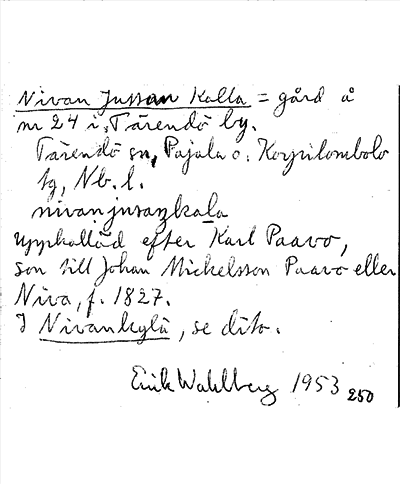 Nivan Jussan Kalla = gård å
nr 24 i Tärendö by.
Tärendö sn, Pajala o. Korpilombolo
tg, Nb. l.
nivan jusaŋkala
uppkallad efter Karl Paavo,
son till Johan Mickelsson Paavo eller
Niva, f. 1827.
I Nivankylä, se dito.
Erik Wahlberg 1953 250